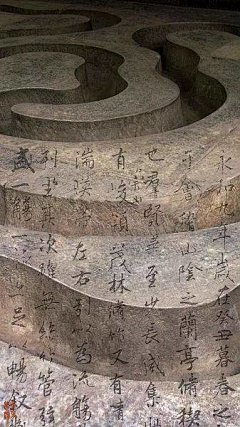 永和九年歲在癸丑暮春之
會稽山陰之蘭亭脩稧
也羣賢畢至少長咸集此
有崇山峻領茂林脩竹又有清
湍暎帶左右引以為流觴
列坐其次雖無絲竹管弦
盛一觴一足暢敘